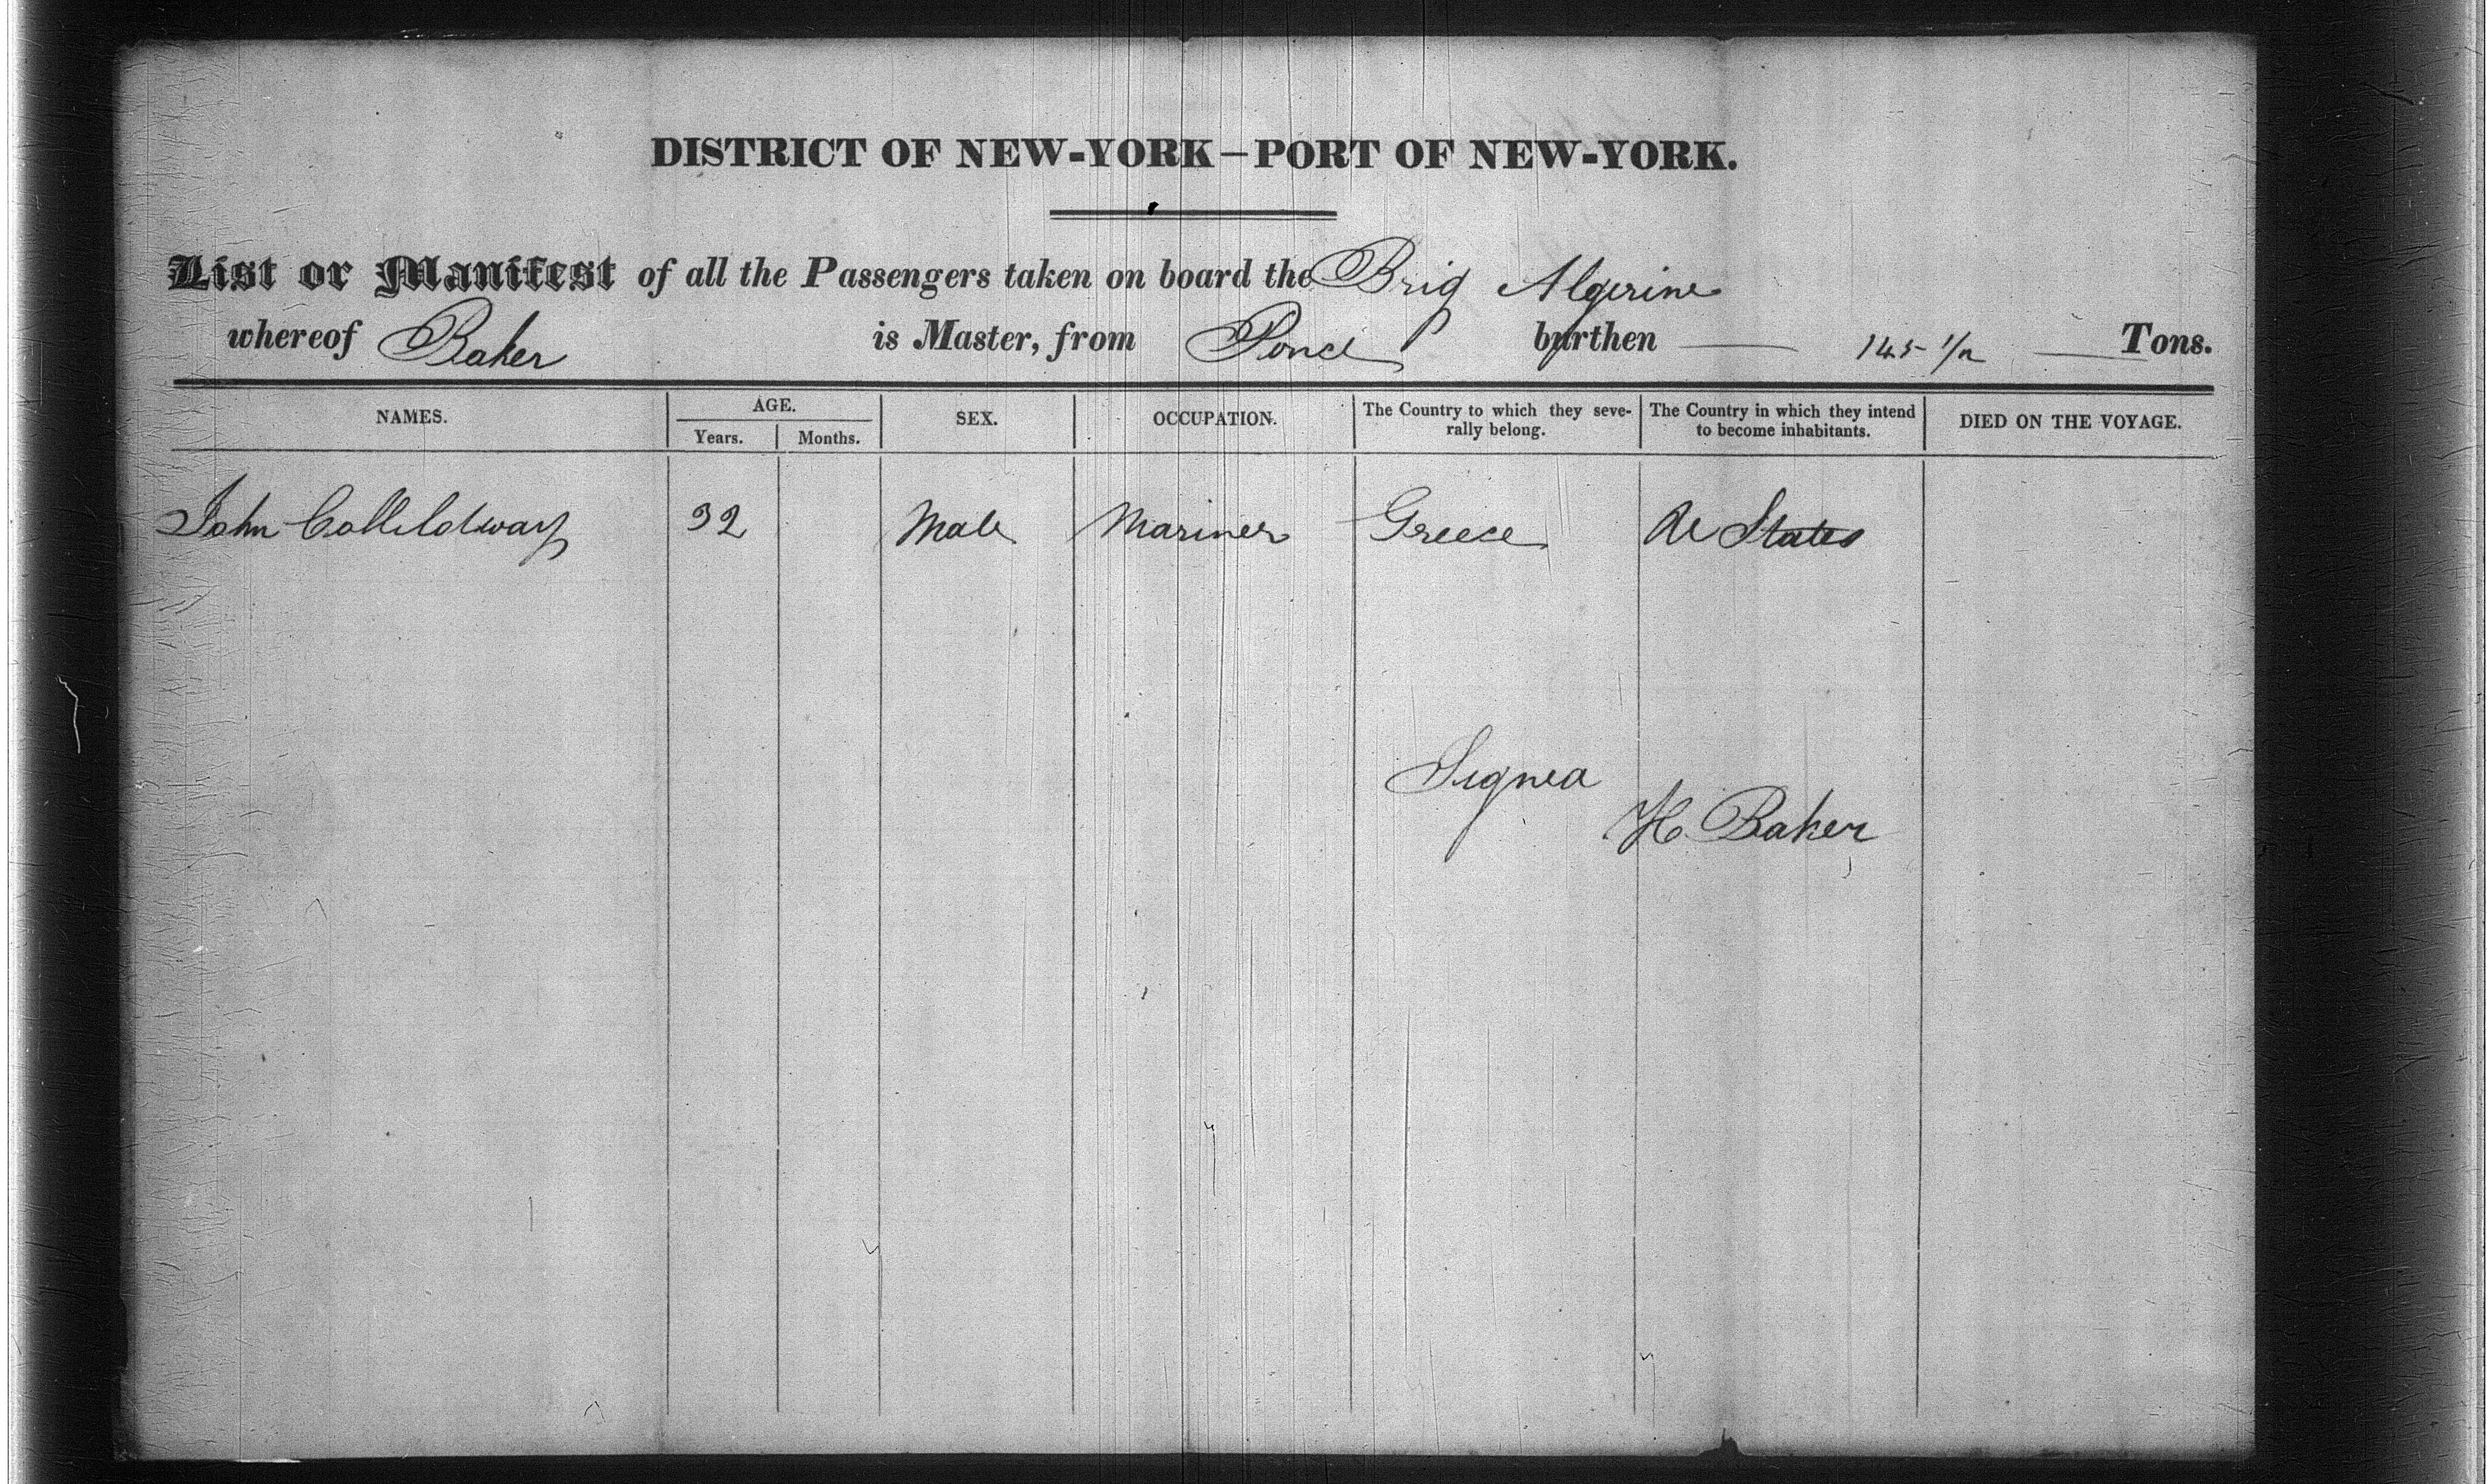 DISTRICT OF NEW-YORK—PORT OF NEW-YORK.
List or Manifest of all the Passengers taken on board the Brig Algerine
whereof Baker is Master, from Ponce burthen — 145 1/2 — Tons.
NAMES. AGE. Years. Months. SEX. OCCUPATION. The Country to which they severally belong. The Country in which they intend to become inhabitants. DIED ON THE VOYAGE.
John 32 Male Mariner Greece States
Signed
H. Baker